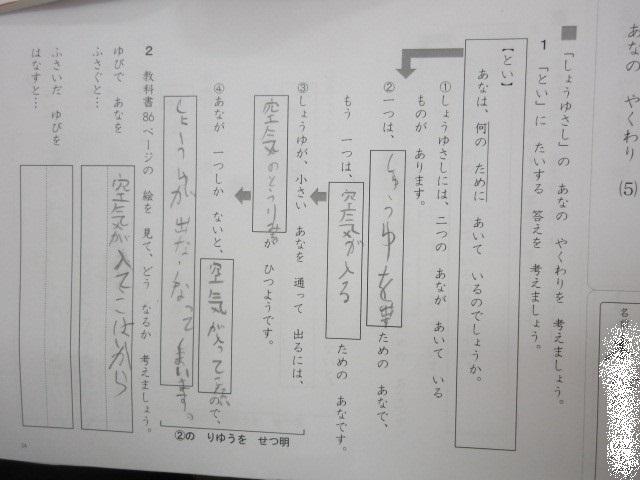 あなの やくわり (5)
名
■「しょうゆさし」の あなの やくわりを 考えましょう。
1 「とい」に たいする 答えを 考えましょう。
【とい】
あなは、何の ために あいて いるのでしょうか。
①しょうゆさしには、二つの あなが あいて いる
ものが あります。
②一つは、しょうゆを ための あなで、
もう 一つは、空気が入る ための あなです。
③しょうゆが、小さい あなを 通って 出るには、
空気のとうりみちが ひつようです。
④あなが 一つしか ないと、空気が入ってこないので、
しょうゆが出なくなってしまいます。
②の りゆうを せつ明
2 教科書86ページの 絵を 見て、どう なるか 考えましょう。
ゆびで あなを
ふさぐと…
空気が入てこないから
ふさいだ ゆびを
はなすと…